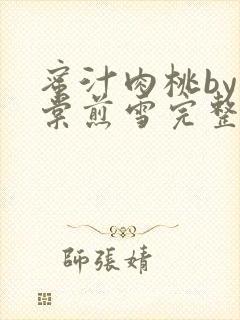 蜜汁肉桃by
棠煎雪完整
師張婧